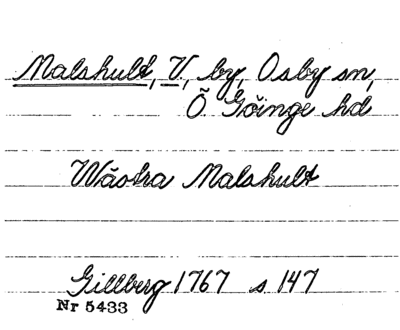 Malshult, V, by, Osby sn,
Ö Göinge hd
Wästra Malshult
Gillberg 1767 s 147
Nr 5433